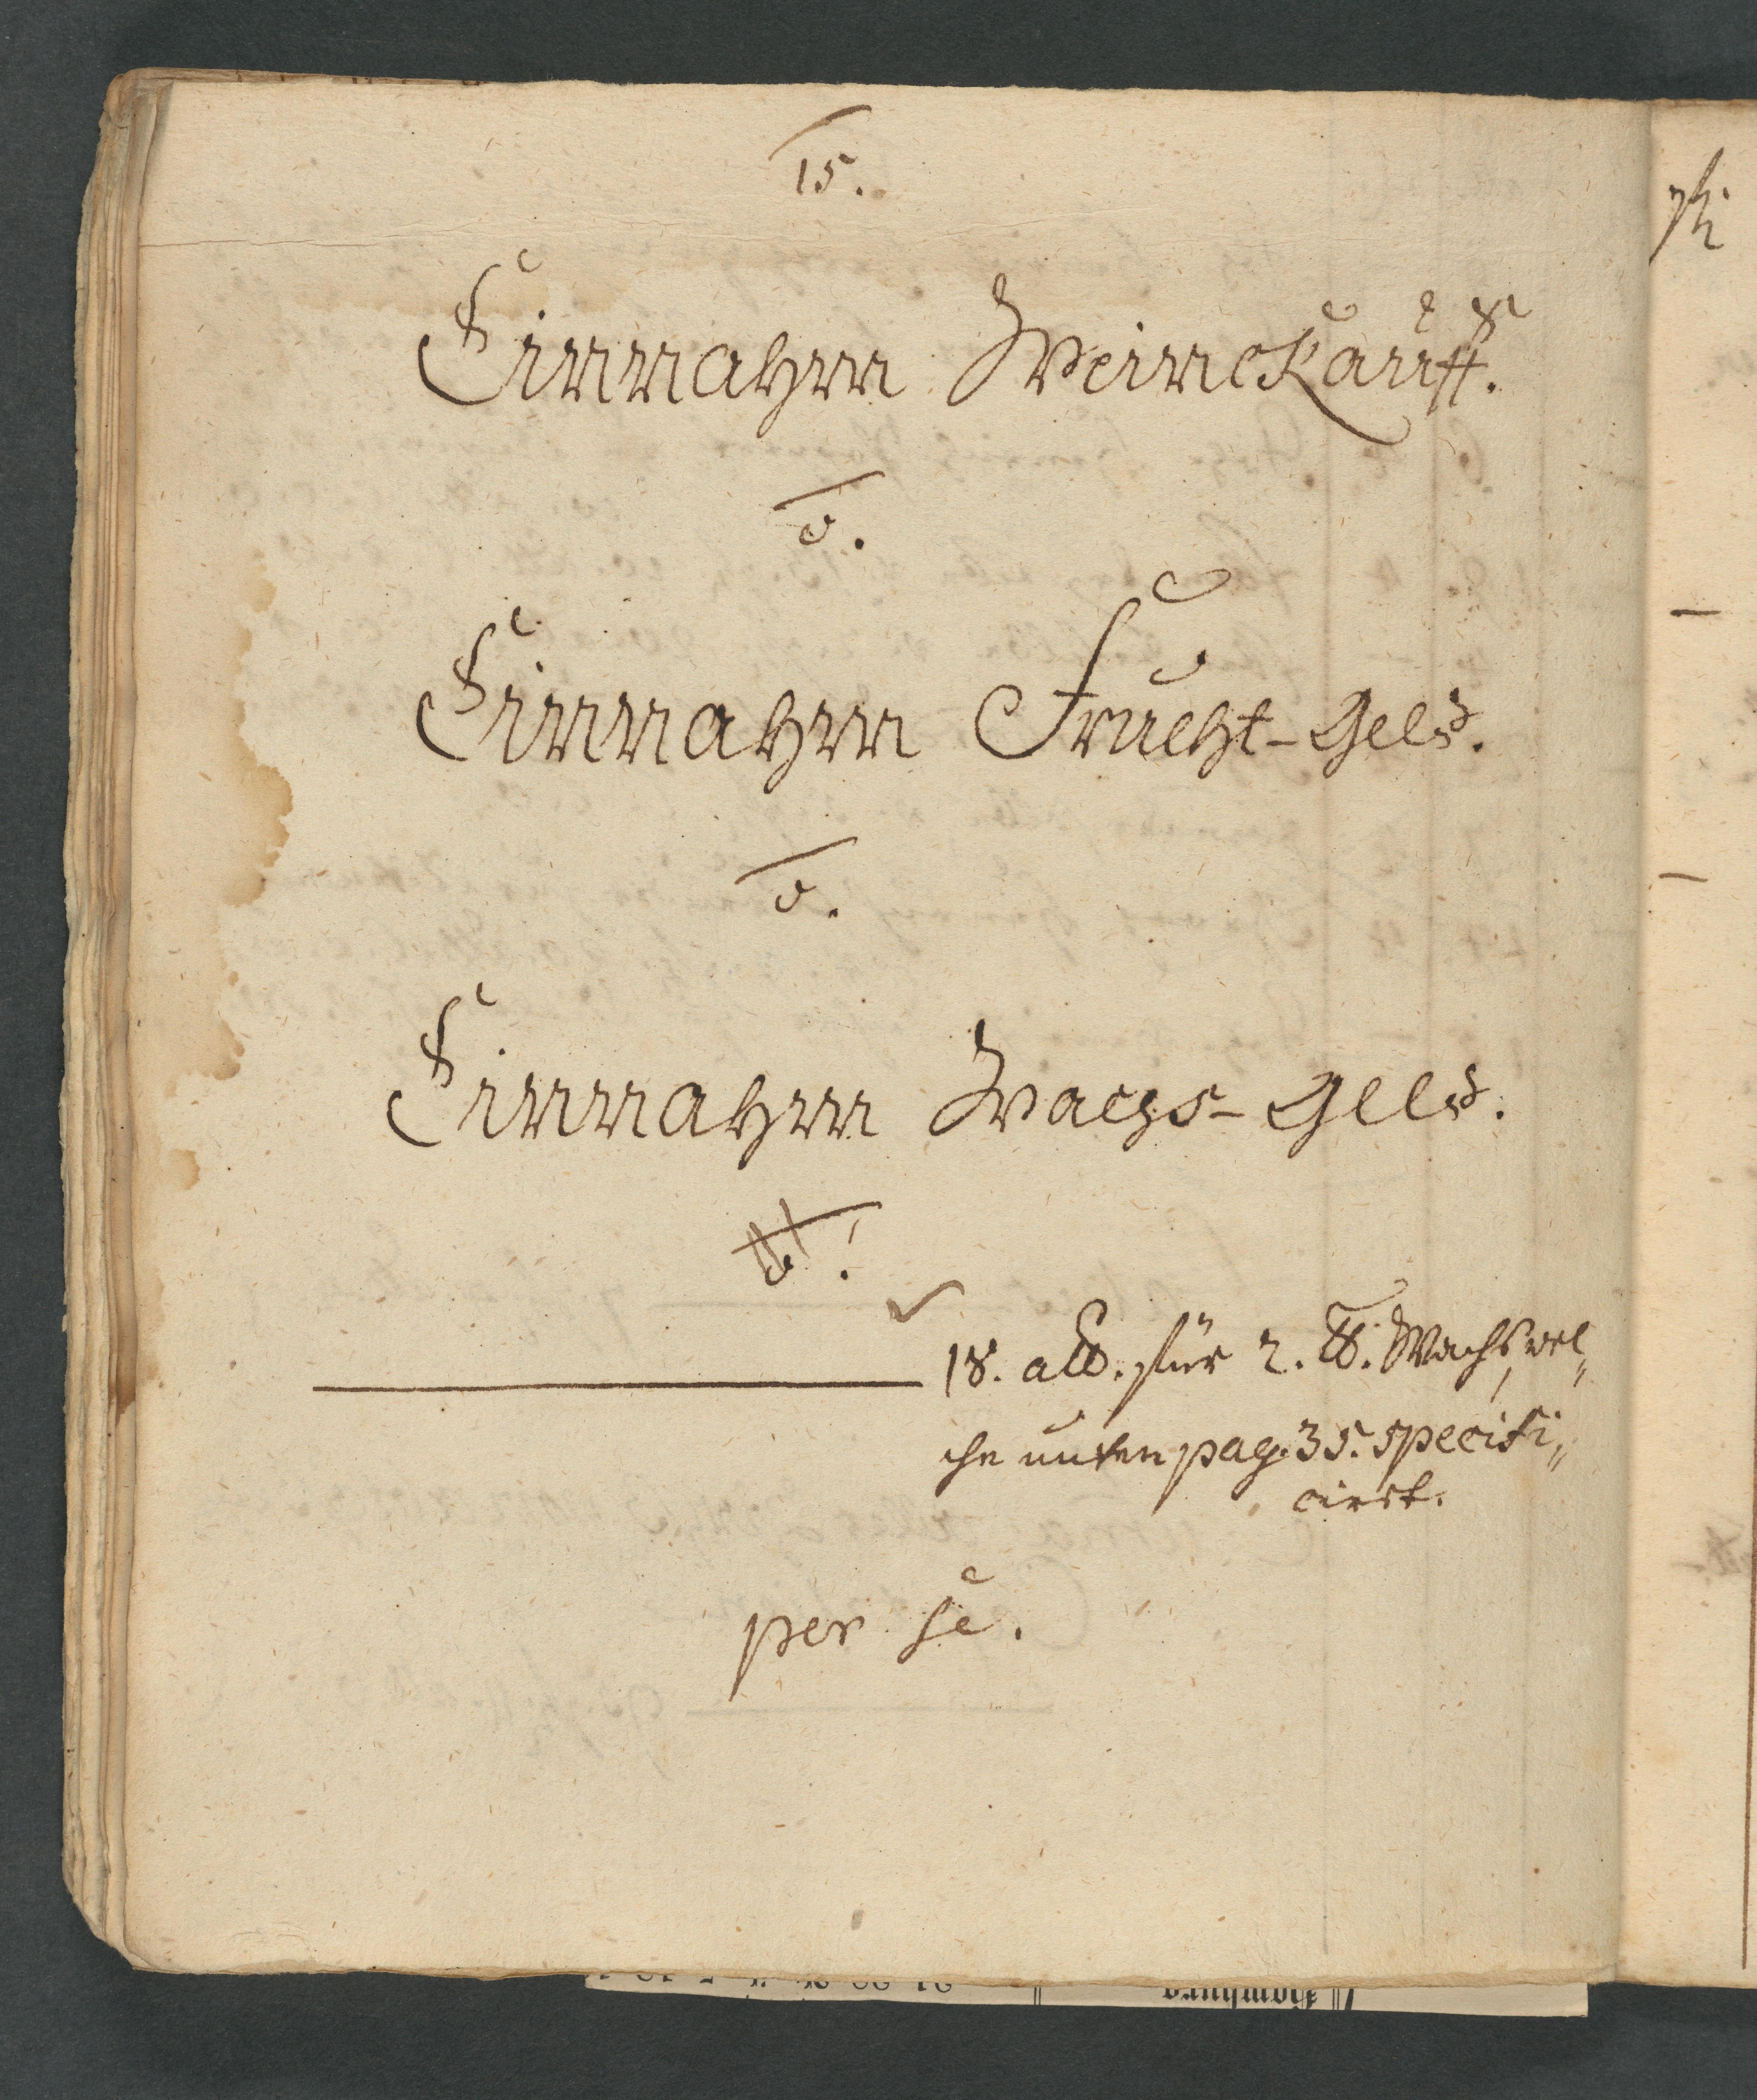 15.
Einnahm Weinckauff.
0.
Einnahm Frucht-Geld.
0.
Einnahm Wachs-Geld.
0.
18. alb. für 2. ℔. Wachß, wel„
che unten pag. 35. specifi„
cirt.
per se.